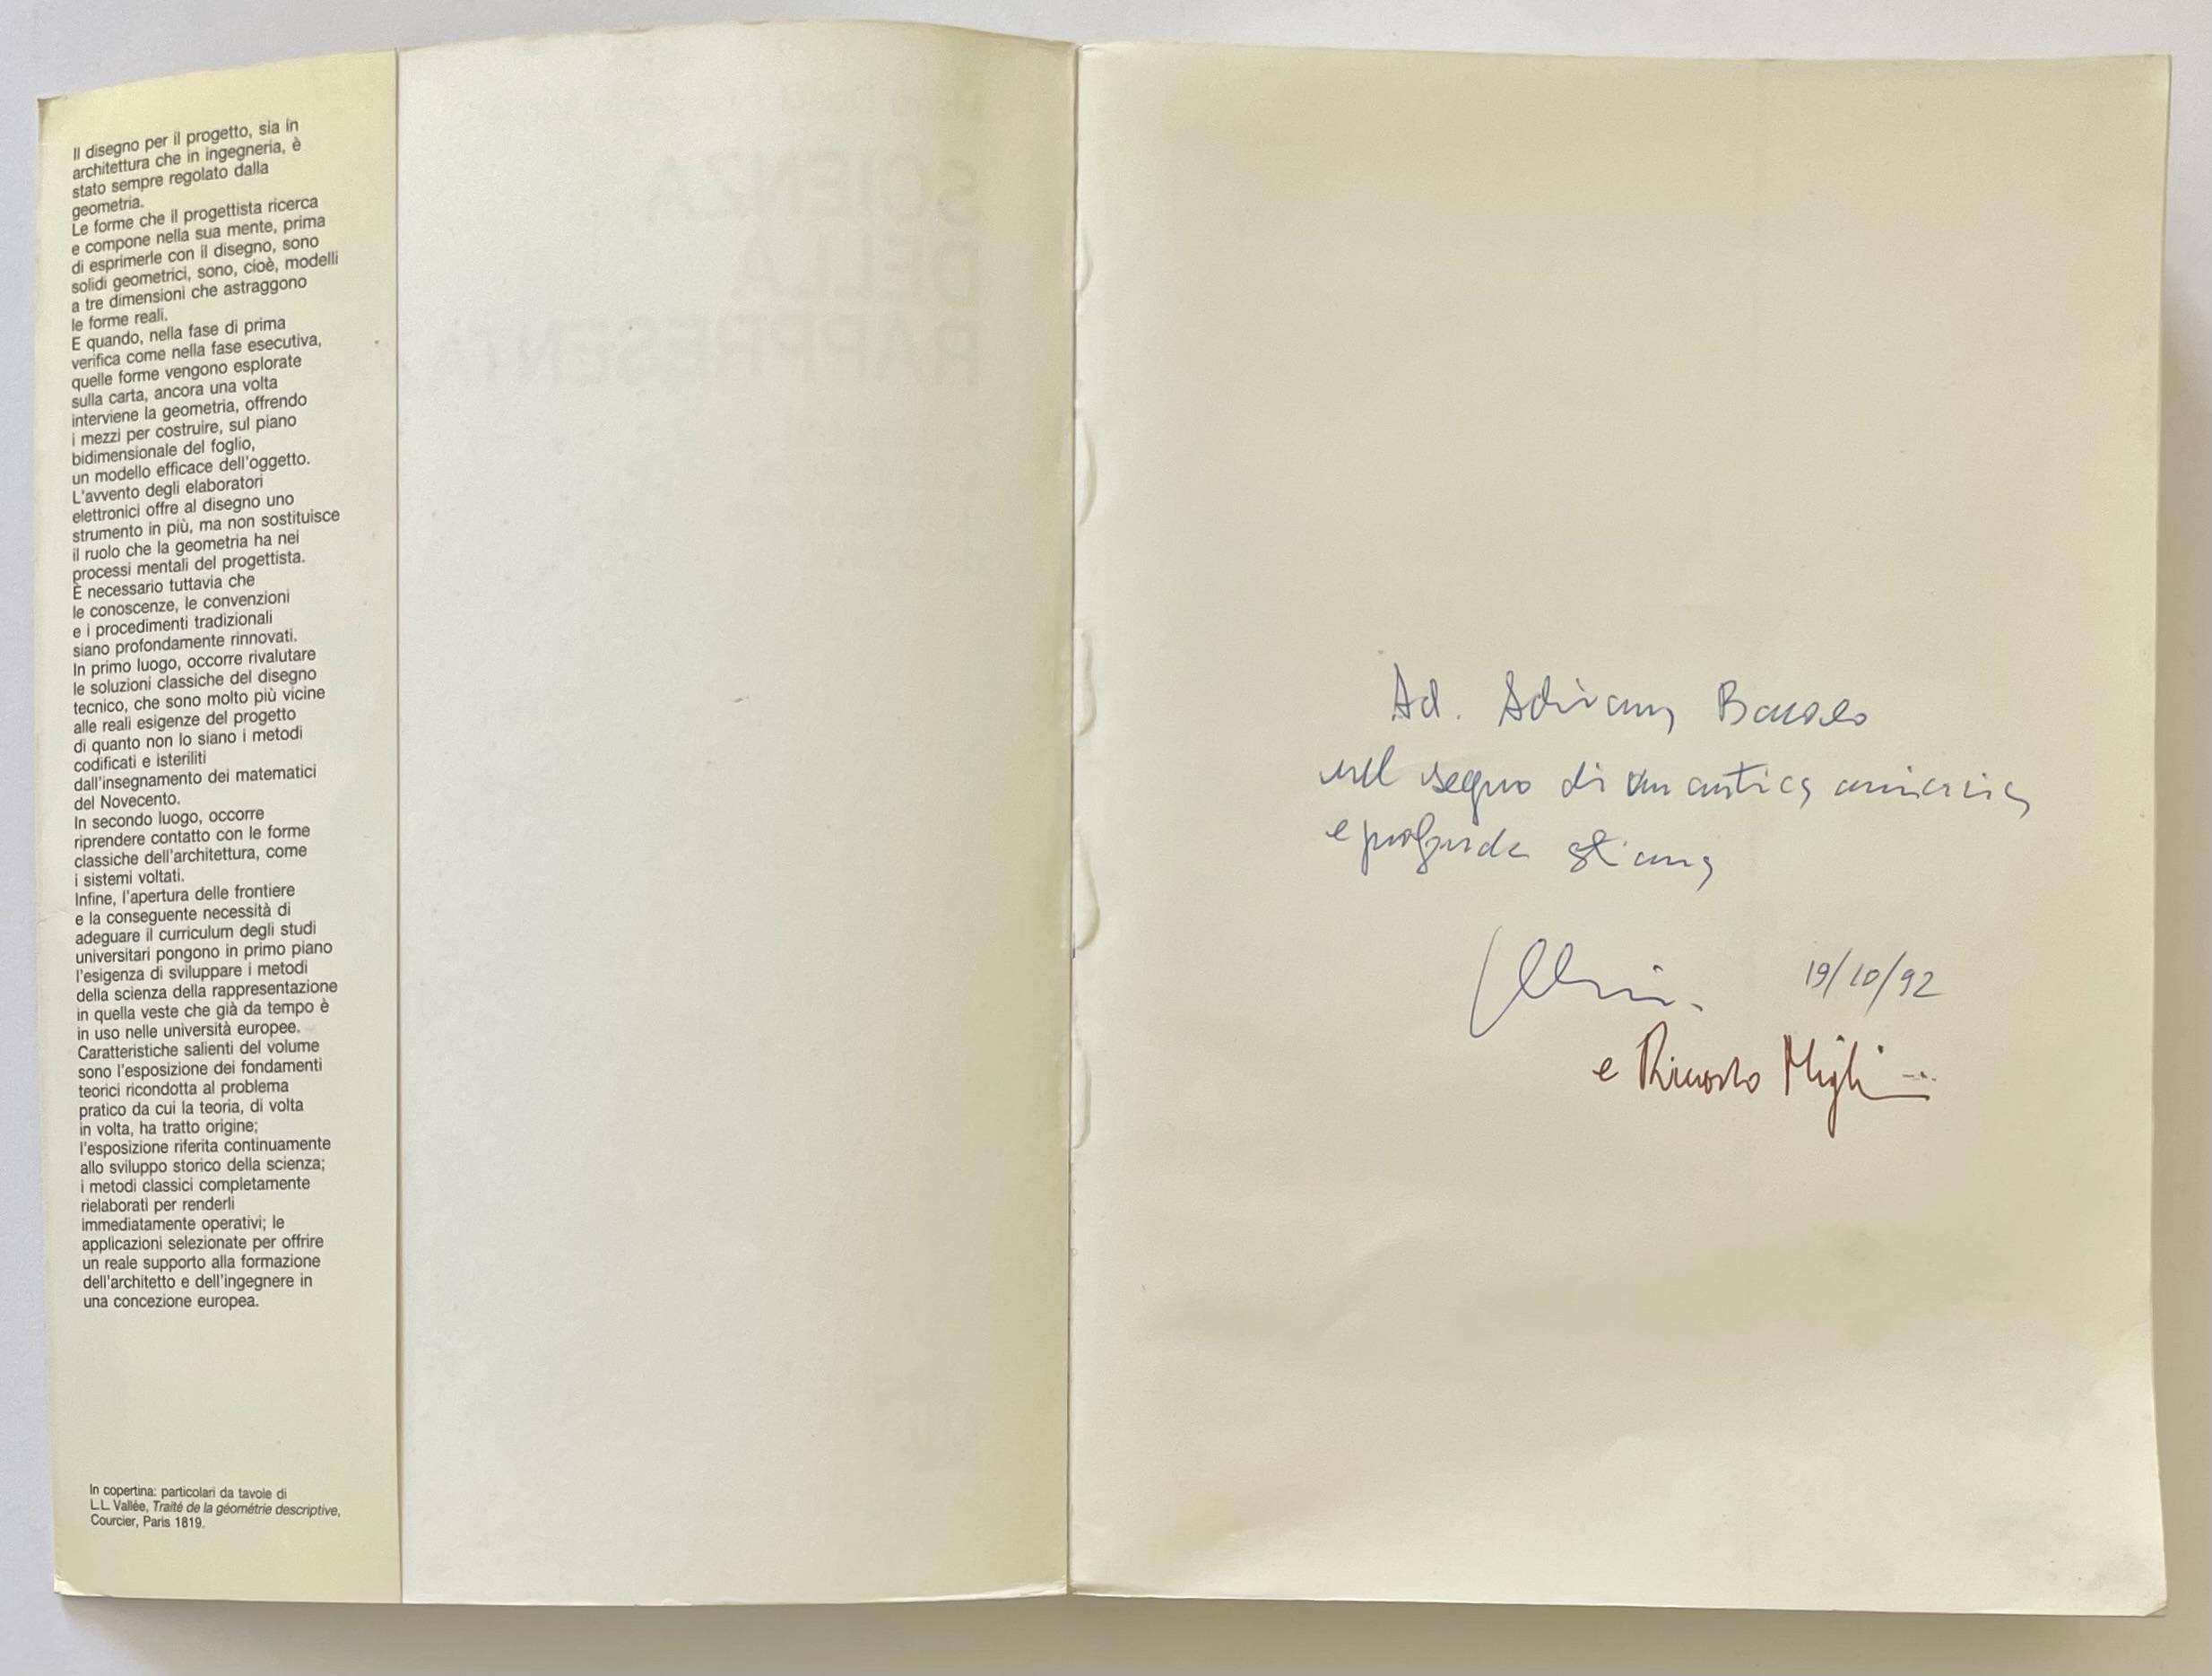 Il disegno per il progetto, sia in
architettura che in ingegneria, è
stato sempre regolato dalla
geometria.
Le forme che il progettista ricerca
e compone nella sua mente, prima
di esprimerle con il disegno, sono
solidi geometrici, sono, cioè, modelli
a tre dimensioni che astraggono
le forme reali.
E quando, nella fase di prima
verifica come nella fase esecutiva,
quelle forme vengono esplorate
sulla carta, ancora una volta
interviene la geometria, offrendo
i mezzi per costruire, sul piano
bidimensionale del foglio,
un modello efficace dell'oggetto.
L'avvento degli elaboratori
elettronici offre al disegno uno
strumento in più, ma non sostituisce
il ruolo che la geometria ha nei
processi mentali del progettista.
È necessario tuttavia che
le conoscenze, le convenzioni
e i procedimenti tradizionali
siano profondamente rinnovati.
In primo luogo, occorre rivalutare
le soluzioni classiche del disegno
tecnico, che sono molto più vicine
alle reali esigenze del progetto
di quanto non lo siano i metodi
codificati e isteriliti
dall'insegnamento dei matematici
del Novecento.
In secondo luogo, occorre
riprendere contatto con le forme
classiche dell'architettura, come
i sistemi voltati.
Infine, l'apertura delle frontiere
e la conseguente necessità di
adeguare il curriculum degli studi
universitari pongono in primo piano
l'esigenza di sviluppare i metodi
della scienza della rappresentazione
in quella veste che già da tempo è
in uso nelle università europee.
Caratteristiche salienti del volume
sono l'esposizione dei fondamenti
teorici ricondotta al problema
pratico da cui la teoria, di volta
in volta, ha tratto origine;
l'esposizione riferita continuamente
allo sviluppo storico della scienza;
i metodi classici completamente
rielaborati per renderli
immediatamente operativi; le
applicazioni selezionate per offrire
un reale supporto alla formazione
dell'architetto e dell'ingegnere in
una concezione europea.
In copertina: particolari da tavole di
L.L. Vallée, Traité de la géométrie descriptive,
Courcier, Paris 1819.
SCIENZA
DELLA
RAPPRESENTA
Ad. Adriana
nel segno di un antica amicizia
e profonda stima
19/10/92
e Riccardo